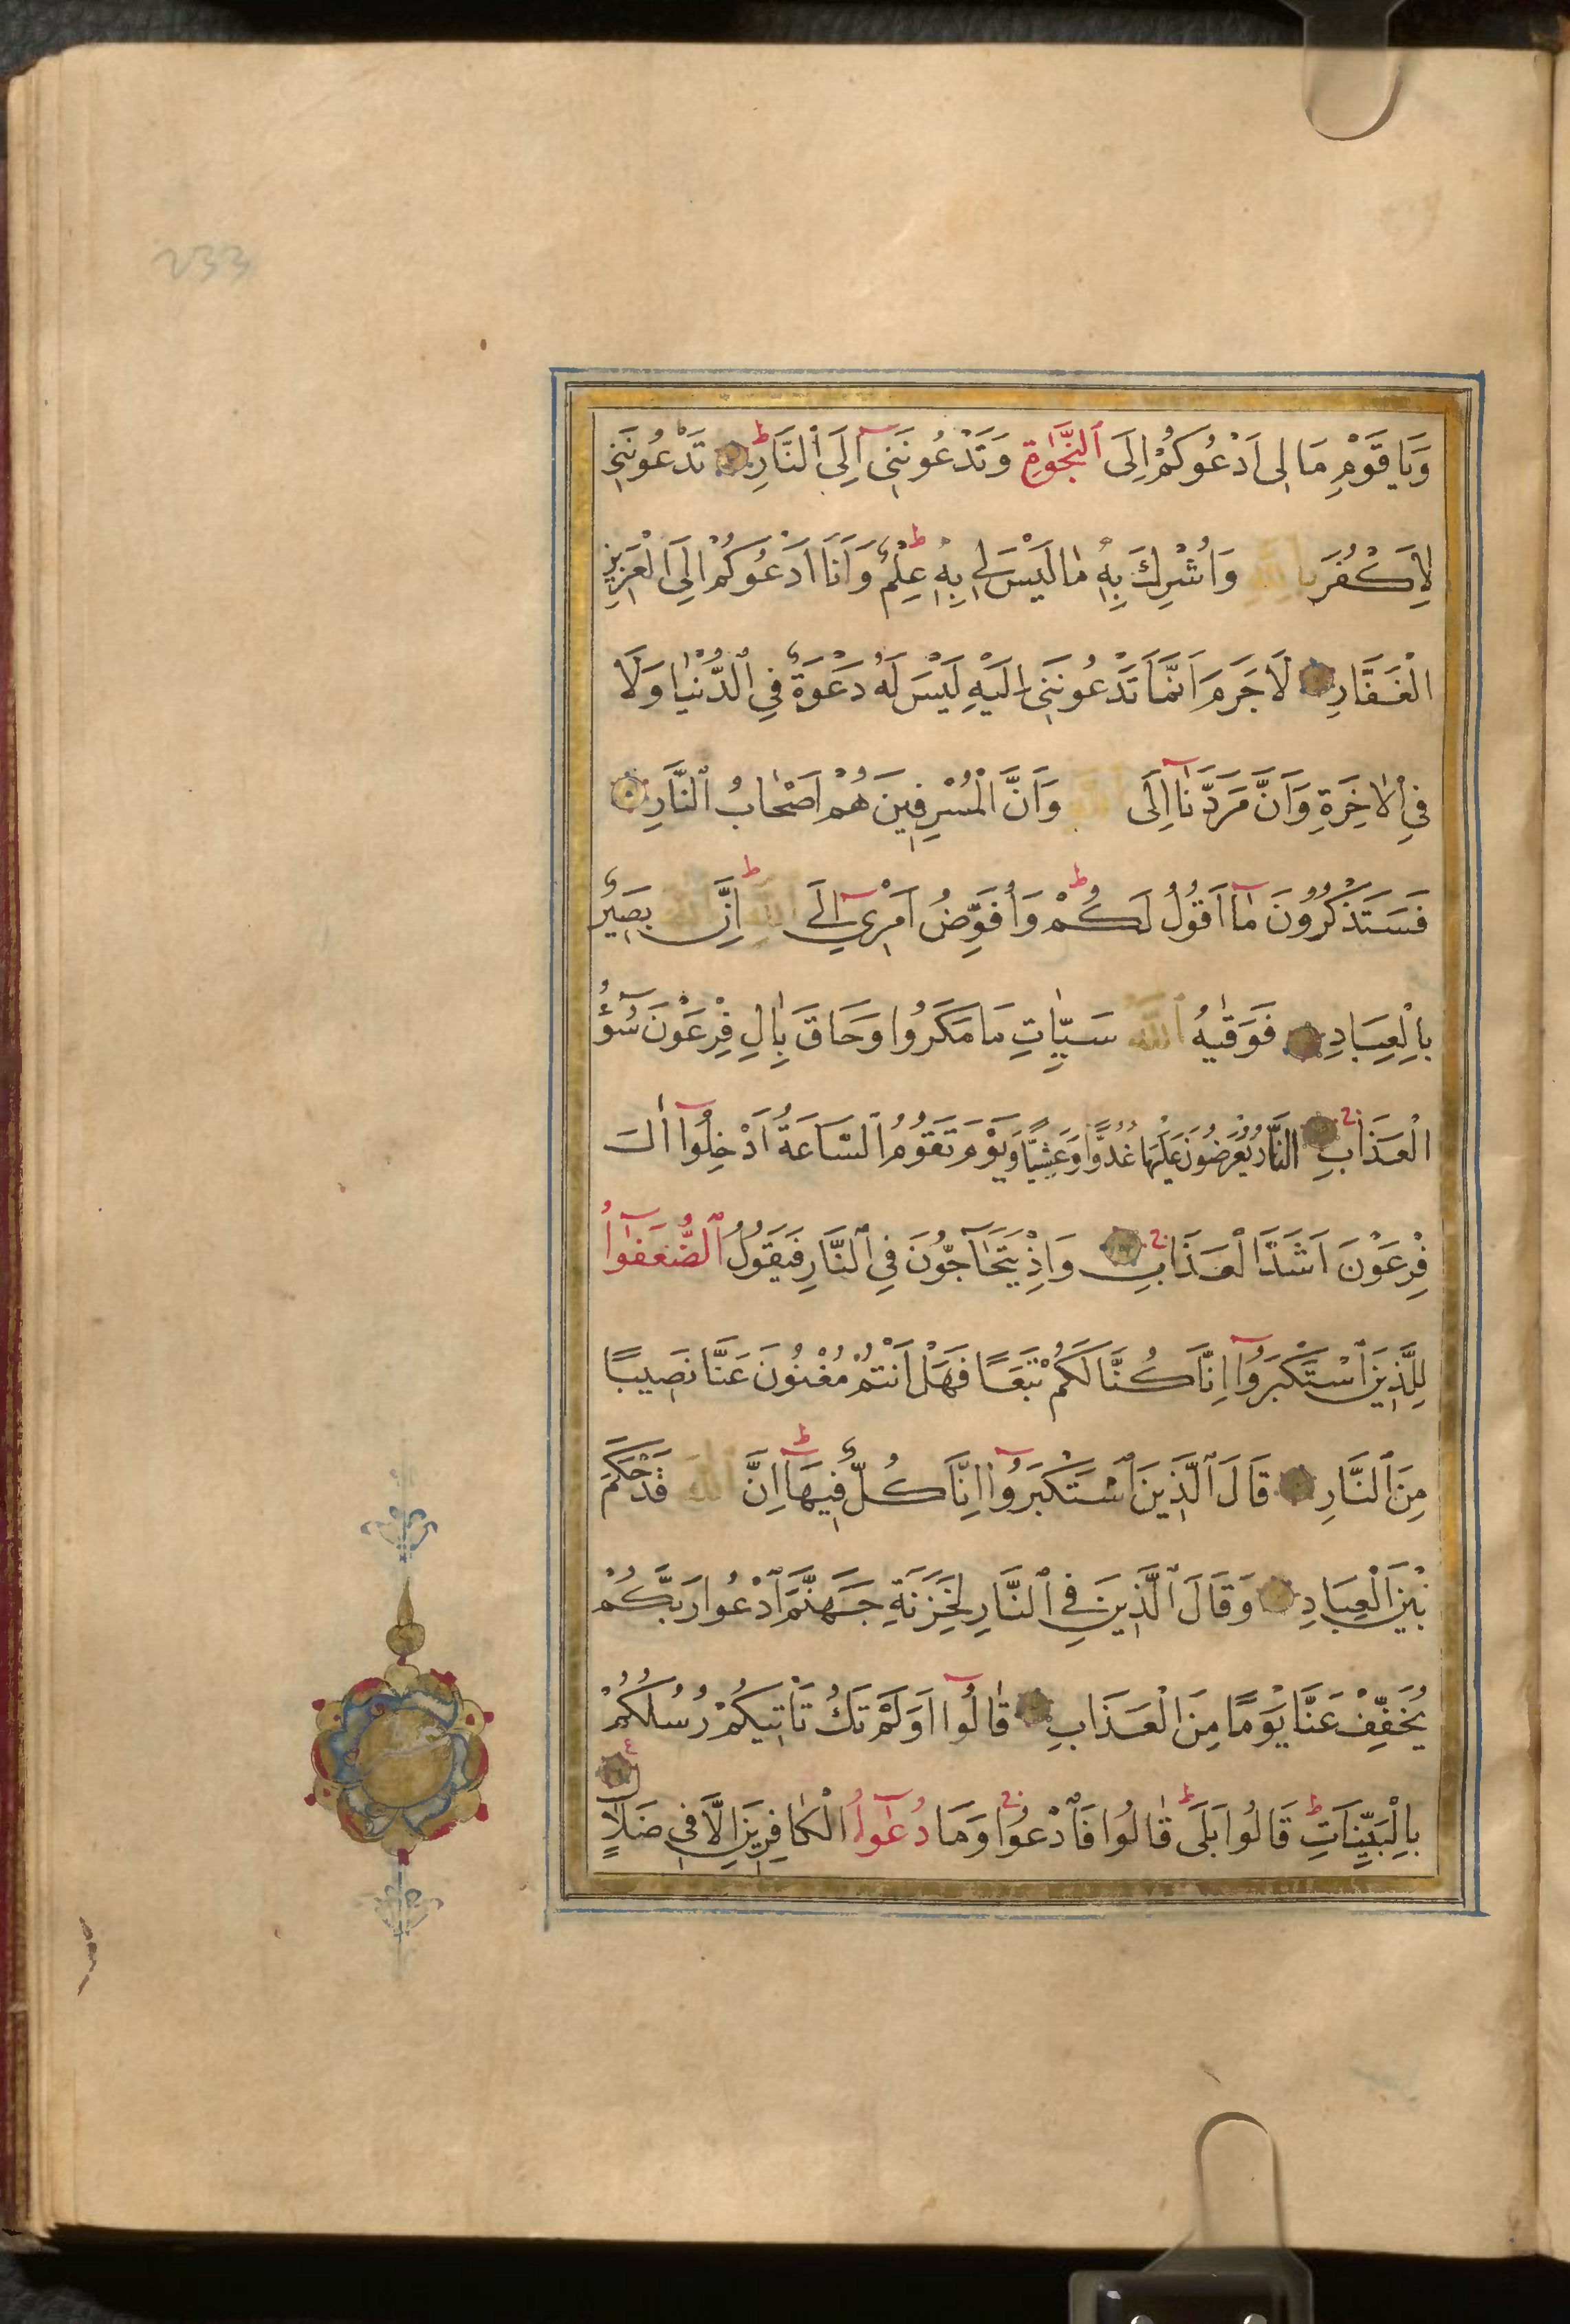 233
وَيَا قَوْمِ مَا لِى اَدْعُوكُمْ اِلَى ٱلنَّجٰوةِ وَتَدْعُونَنِىٓ اِلَى ٱلنَّارِ ط تَدْعُونَنِى
لِاَكْفُرَ بِاللّٰهِ وَاُشْرِكَ بِهٖ مٰا لَيْسَ لِى بِهٖ عِلْمٌ ط وَاَنَا اَدْعُوكُمْ اِلَى الْعَزِيزِ
الْغَفَّارِ لَا جَرَمَ اَنَّمَا تَدْعُونَنِى اِلَيْهِ لَيْسَ لَهُ دَعْوَةٌ فِى ٱلدُّنْيٰا وَلَا
فِى ٱلْاٰخِرَةِ وَاَنَّ مَرَدَّنَآ اِلَى ٱللّٰهِ وَاَنَّ الْمُسْرِفِينَ هُمْ اَصْحَابُ ٱلنَّارِ
فَسَتَذْكُرُونَ مَآ اَقُولُ لَكُمْ ط وَاُفَوِّضُ اَمْرِىٓ اِلَى ٱللّٰهِ ط اِنَّ ٱللّٰهَ بَصِيرٌ
بِالْعِبَادِ فَوَقٰيهُ ٱللّٰهُ سَيِّاٰتِ مَا مَكَرُوا وَحَاقَ بِاٰلِ فِرْعَوْنَ سُوٓءُ
الْعَذَابِ ج النَّارُ يُعْرَضُونَ عَلَيْهَا غُدُوًّا وَعَشِيًّا وَيَوْمَ تَقُومُ ٱلسَّاعَةُ اَدْخِلُوٓا اٰلَ
فِرْعَوْنَ اَشَدَّ الْعَذَابِ ج وَاِذْ يَتَحَآجُّونَ فِى ٱلنَّارِ فَيَقُولُ ٱلضُّعَفٰٓؤُا
لِلَّذِينَ ٱسْتَكْبَرُوٓا اِنَّا كُنَّا لَكُمْ تَبَعًا فَهَلْ اَنْتُمْ مُغْنُونَ عَنَّا نَصِيبًا
مِنَ ٱلنَّارِ قَالَ ٱلَّذِينَ ٱسْتَكْبَرُوٓا اِنَّا كُلٌّ فِيهَآ ط اِنَّ ٱللّٰهَ قَدْ حَكَمَ
بَيْنَ الْعِبَادِ وَقَالَ ٱلَّذِينَ فِى ٱلنَّارِ لِخَزَنَةِ جَهَنَّمَ ٱدْعُوا رَبَّكُمْ
يُخَفِّفْ عَنَّا يَوْمًا مِنَ الْعَذَابِ قٰالُوٓا اَوَلَمْ تَكُ تَاْتِيكُمْ رُسُلُكُمْ
بِالْبَيِّنَاتِ ط قَالُوا بَلَى ط قٰالُوا فَٱدْعُوا ج وَمَا دُعٰٓؤُا الْكَافِرِينَ اِلَّا فِى ضَلَالٍ ع